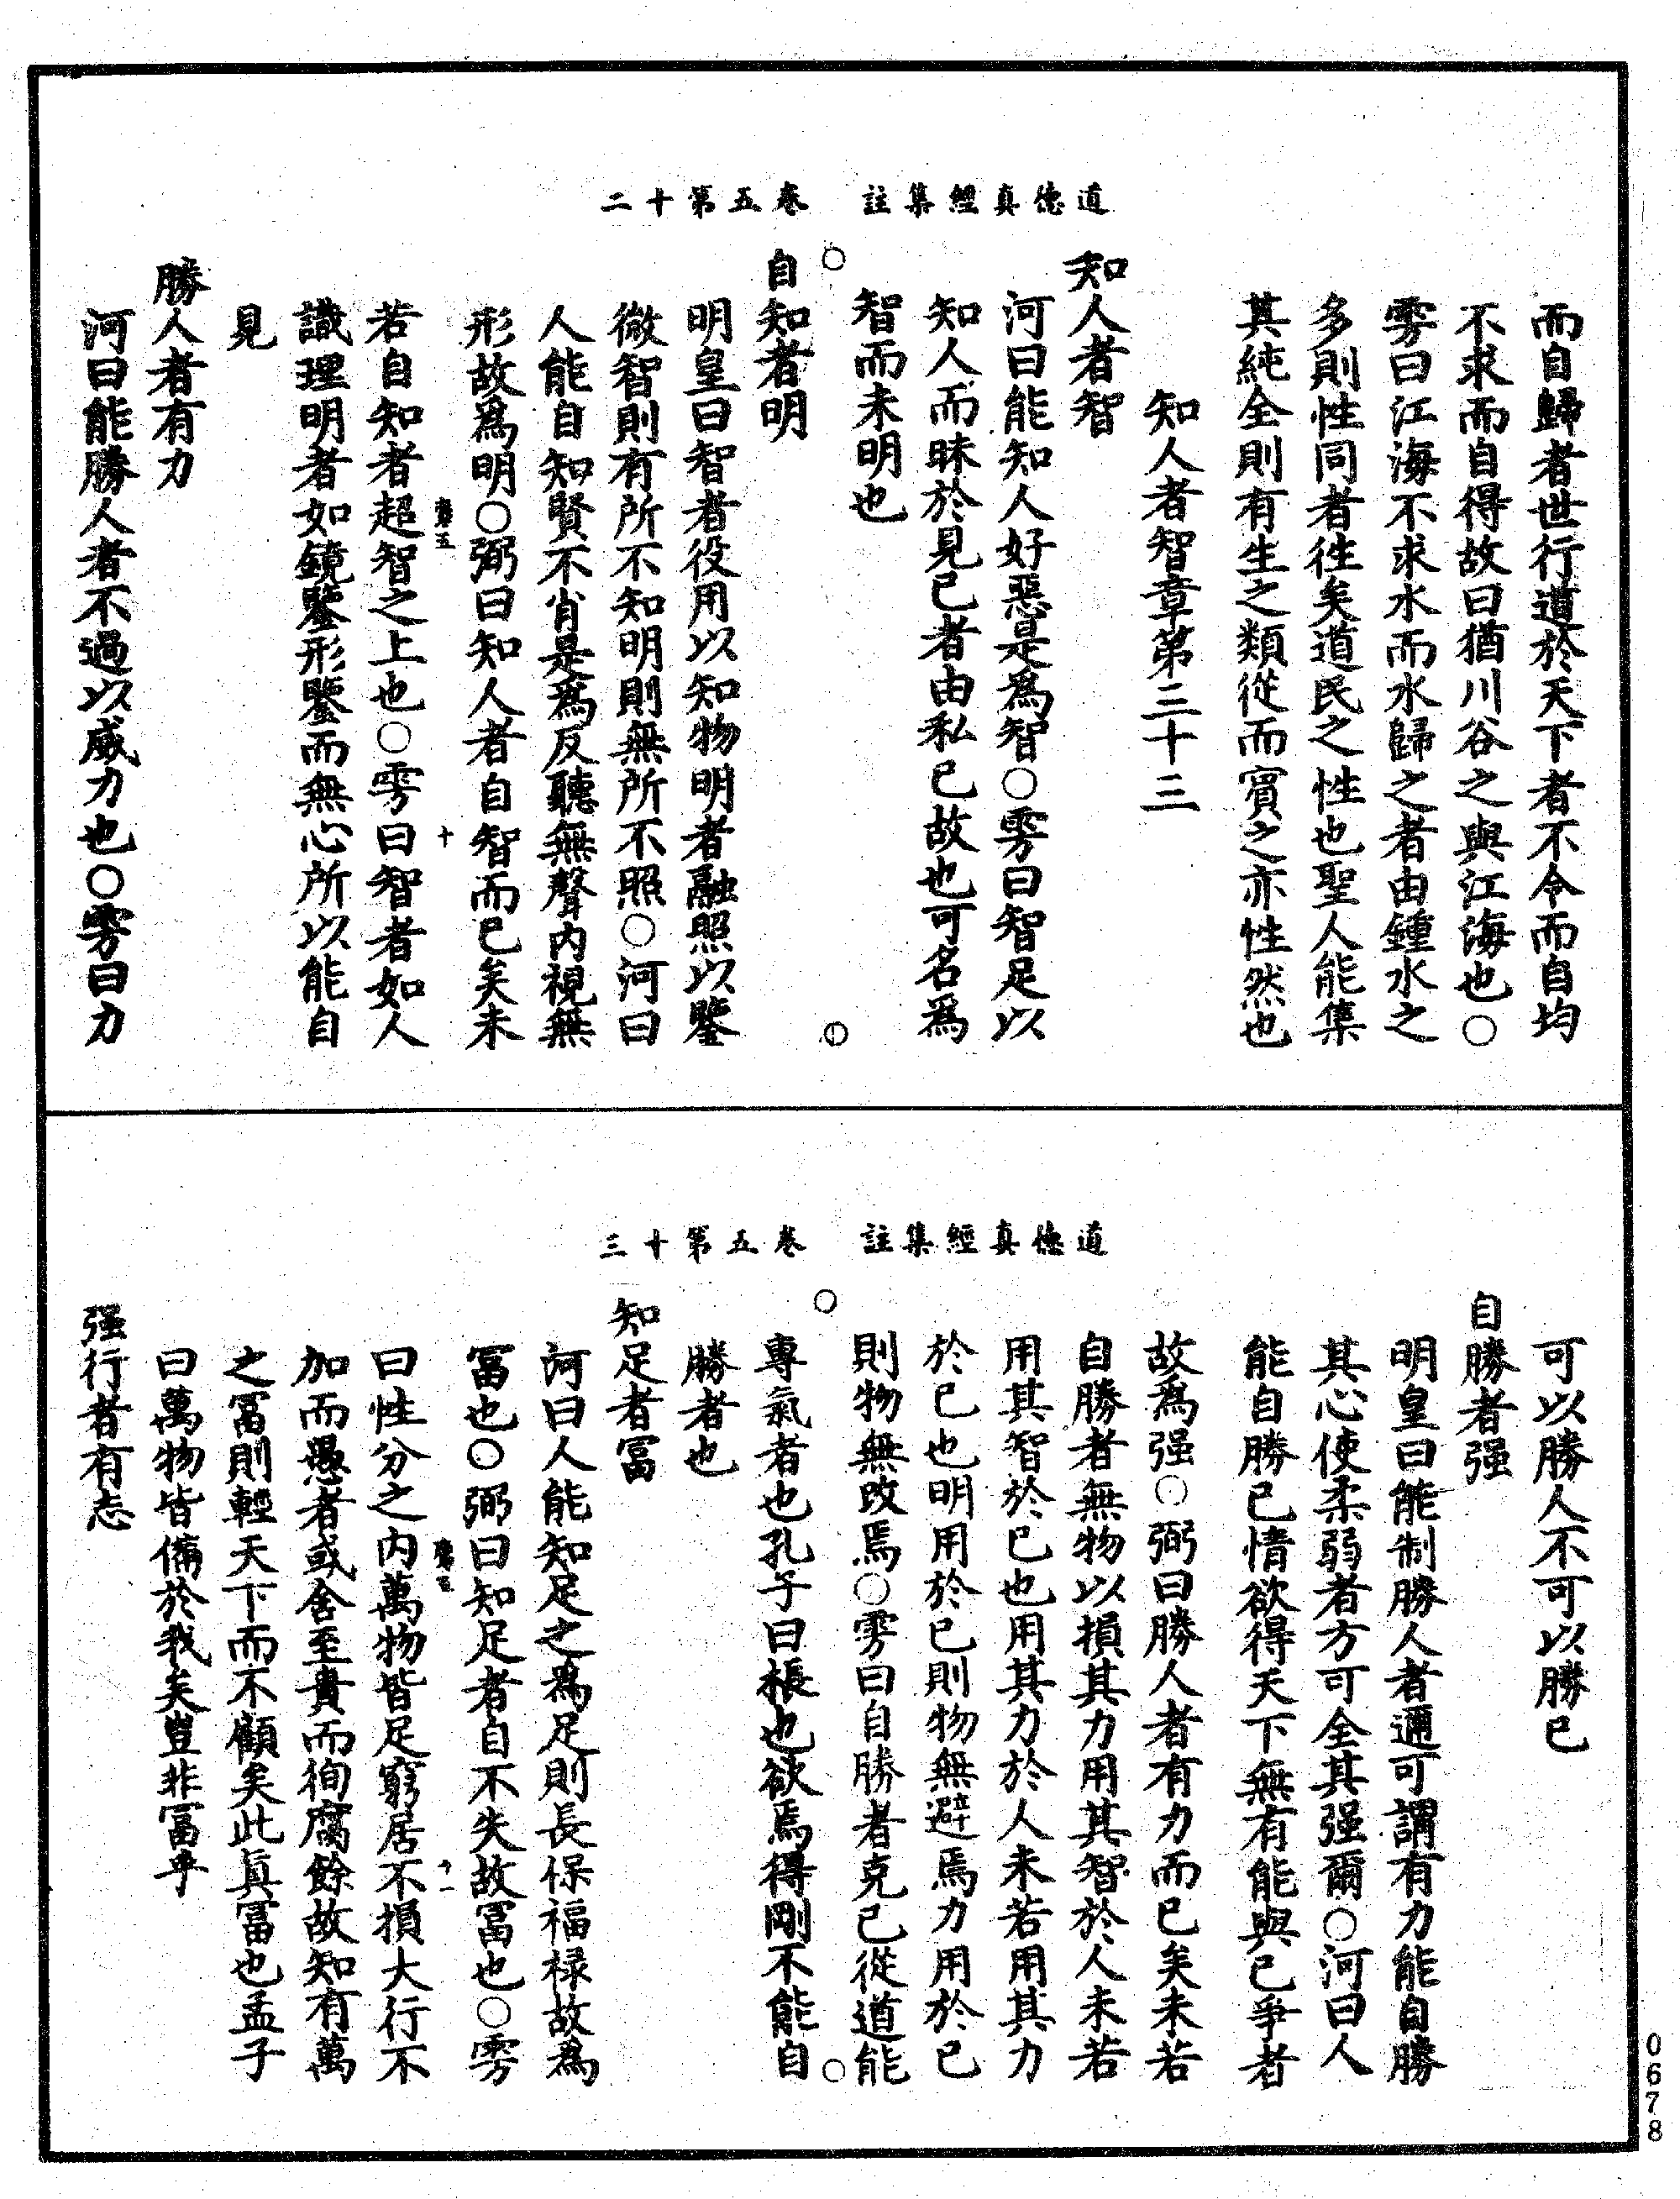 道德真經集註　卷五第十二
而自歸者世行道於天下者不令而自均
不求而自得故曰猶川谷之與江海也○
雱曰江海不求水而水歸之者由鍾水之
多則性同者徃矣道民之性也聖人能集
其純全則有生之類從而賓之亦性然也
知人者智章第三十三
知人者智
河曰能知人好惡是爲智○雱曰智足以
知人而昧於見已者由私已故也可名爲
智而未明也
自知者明
明皇曰智者役用以知物明者融照以鑒
微智則有所不知明則無所不照○河曰
人能自知賢不肖是爲反聽無聲内視無
形故爲明○弼曰知人者自智而已矣未
若自知者超智之上也○雱曰智者如人
識理明者如鏡鑒形鑒而無心所以能自
見
勝人者有力
河曰能勝人者不過以威力也○雱曰力
道德真經集註　卷五第十三
可以勝人不可以勝已
自勝者强
明皇曰能制勝人者適可謂有力能自勝
其心使柔弱者方可全其强爾○河曰人
能自勝已情欲得天下無有能與已爭者
故爲强○弼曰勝人者有力而已矣未若
自勝者無物以損其力用其智於人未若
用其智於已也用其力於人未若用其力
於已也明用於已則物無避焉力用於已
則物無改焉○雱曰自勝者克已從道能
專氣者也孔子曰棖也欲焉得剛不能自
勝者也
知足者冨
河曰人能知足之爲足則長保福禄故爲
冨也○弼曰知足者自不失故冨也○雱
曰性分之内萬物皆足窮居不損大行不
加而愚者或舍至貴而徇腐餘故知有萬
之冨則輕天下而不顧矣此真冨也孟子
曰萬物皆備於我矣豈非冨乎
强行者有志
0678